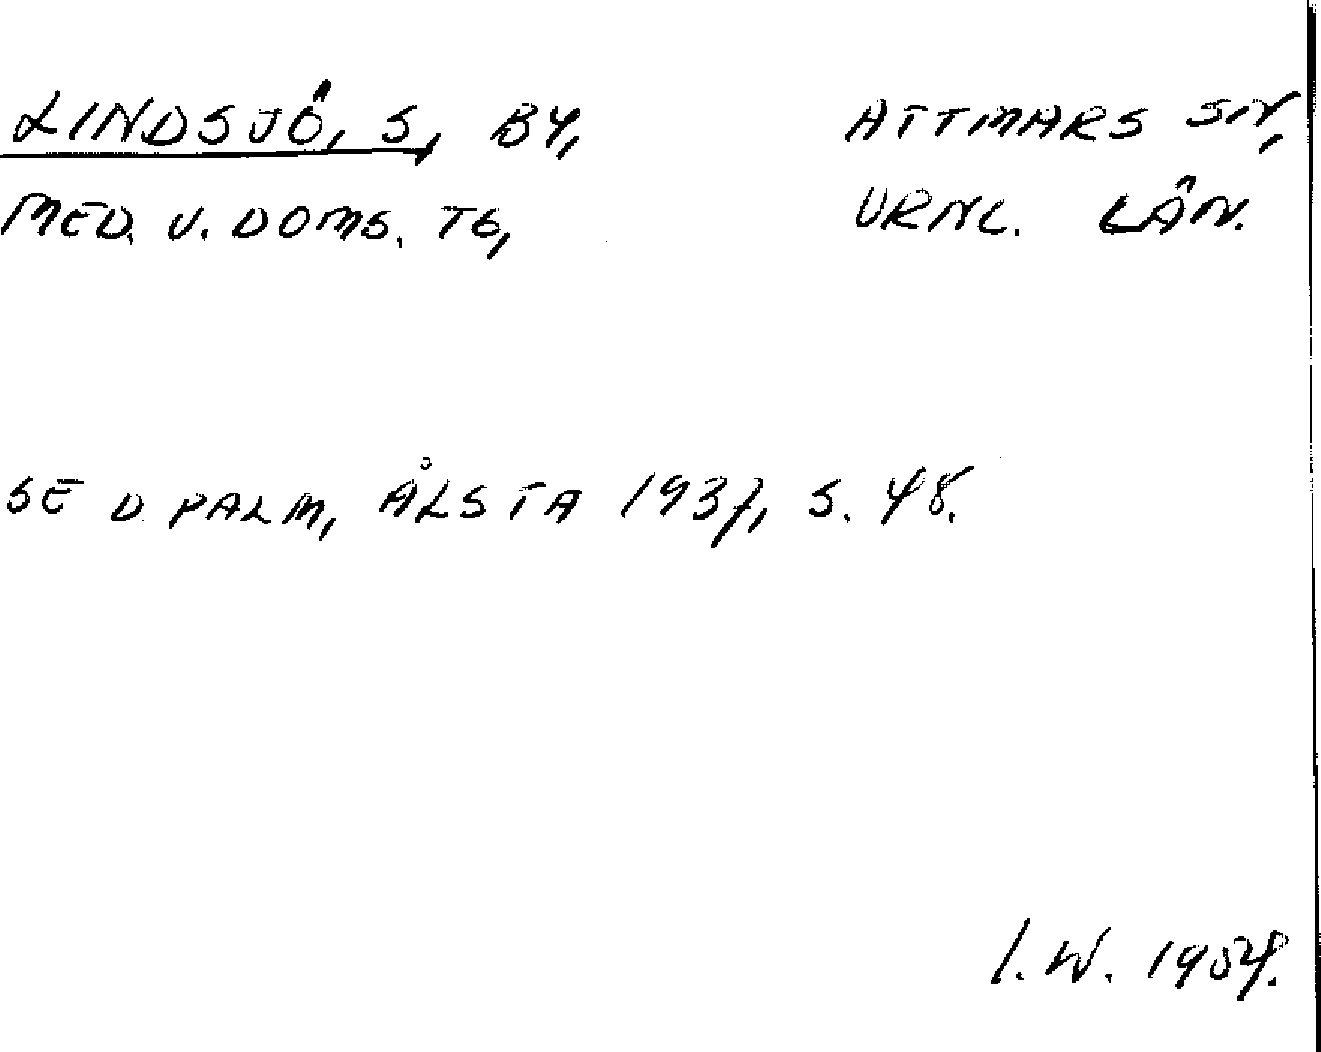 LINDSJÖ, S, BY, ATTMARS SN,
MED. V. DOMS. TG, VRNL. LÄN.
SE D PALM, ÅLSTA 1937, S. 48.
I. W. 1954.